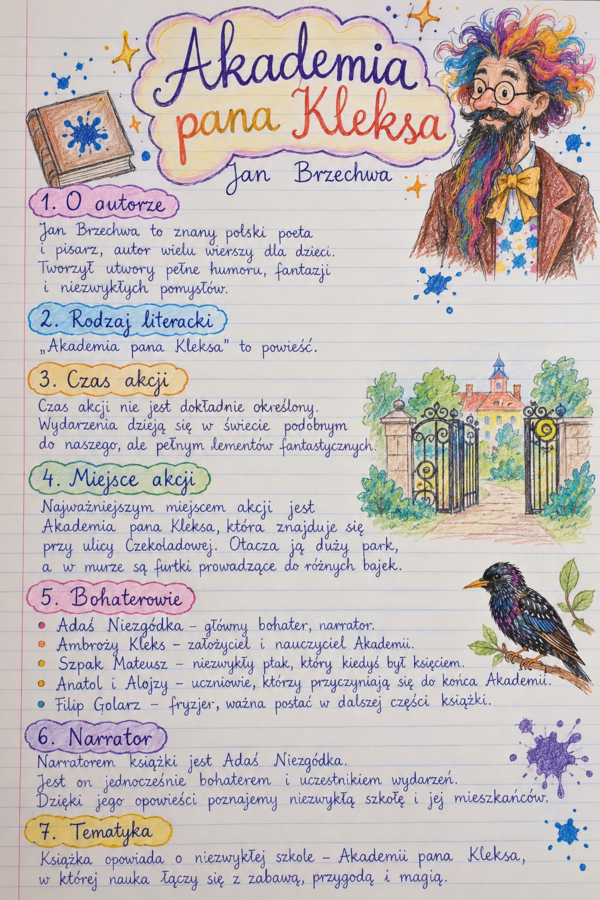 Akademia
pana Kleksa
Jan Brzechwa
1. O autorze
Jan Brzechwa to znany polski poeta
i pisarz, autor wielu wierszy dla dzieci.
Tworzył utwory pełne humoru, fantazji
i niezwykłych pomysłów.
2. Rodzaj literacki
„Akademia pana Kleksa" to powieść.
3. Czas akcji
Czas akcji nie jest dokładnie określony.
Wydarzenia dzieją się w świecie podobnym
do naszego, ale pełnym lementów fantastycznych.
4. Miejsce akcji
Najważniejszym miejscem akcji jest
Akademia pana Kleksa, która znajduje się
przy ulicy Czekoladowej. Otacza ją duży park,
a w murze są furtki prowadzące do różnych bajek.
5. Bohaterowie
• Adaś Niezgódka – główny bohater, narrator.
• Ambroży Kleks – założyciel i nauczyciel Akademii.
• Szpak Mateusz – niezwykły ptak, który kiedyś był księciem.
• Anatol i Alojzy – uczniowie, którzy przyczyniają się do końca Akademii.
• Filip Golarz – fryzjer, ważna postać w dalszej części książki.
6. Narrator
Narratorem książki jest Adaś Niezgódka.
Jest on jednocześnie bohaterem i uczestnikiem wydarzeń.
Dzięki jego opowieści poznajemy niezwykłą szkołę i jej mieszkańców.
7. Tematyka
Książka opowiada o niezwykłej szkole – Akademii pana Kleksa,
w której nauka łączy się z zabawą, przygodą i magią.